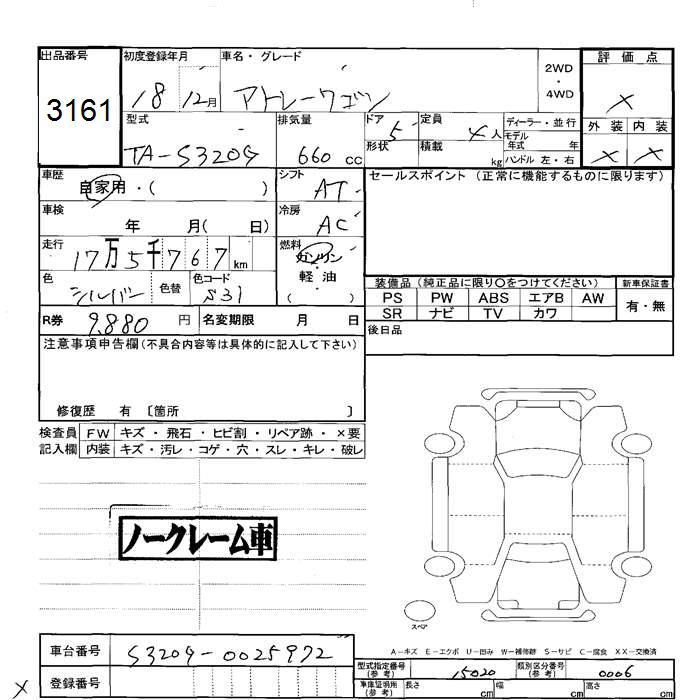 出品番号 初度登録年月 車名・グレード 2WD ・ 4WD 評価点
3161 18 12月 アトレーワゴン ×
型式 排気量 ドア 5 定員 4人 ディーラー・並行 外装 内装
TA-S320G 660 cc 形状 積載 kg モデル年式 年 ハンドル 左・右 × ×
車歴 自家用・( ) シフト AT セールスポイント (正常に機能するものに限ります)
車検 年 月( 日) 冷房 AC
走行 17万5千767km 燃料 ガソリン・軽油 ( )
色 シルバー 色替 色コード S31
装備品 (純正品に限り〇をつけてください) 新車保証書
PS PW ABS エアB AW 有・無
SR ナビ TV カワ
R券 9,880 円 名変期限 月 日 後日品
注意事項申告欄(不具合内容等は具体的に記入して下さい)
修復歴 有 〔箇所 〕
検査員 FW キズ・飛石・ヒビ割・リペア跡・×要
記入欄 内装 キズ・汚レ・コゲ・穴・スレ・キレ・破レ
ノークレーム車
スペア
A-キズ E-エクボ U-凹み W-補修跡 S-サビ C-腐食 XX-交換済
車台番号 S320G-0025972 型式指定番号 (参考) 15020 類別区分番号 (参考) 0006
× 登録番号 車庫証明用 (参考) 長さ cm 幅 cm 高さ cm